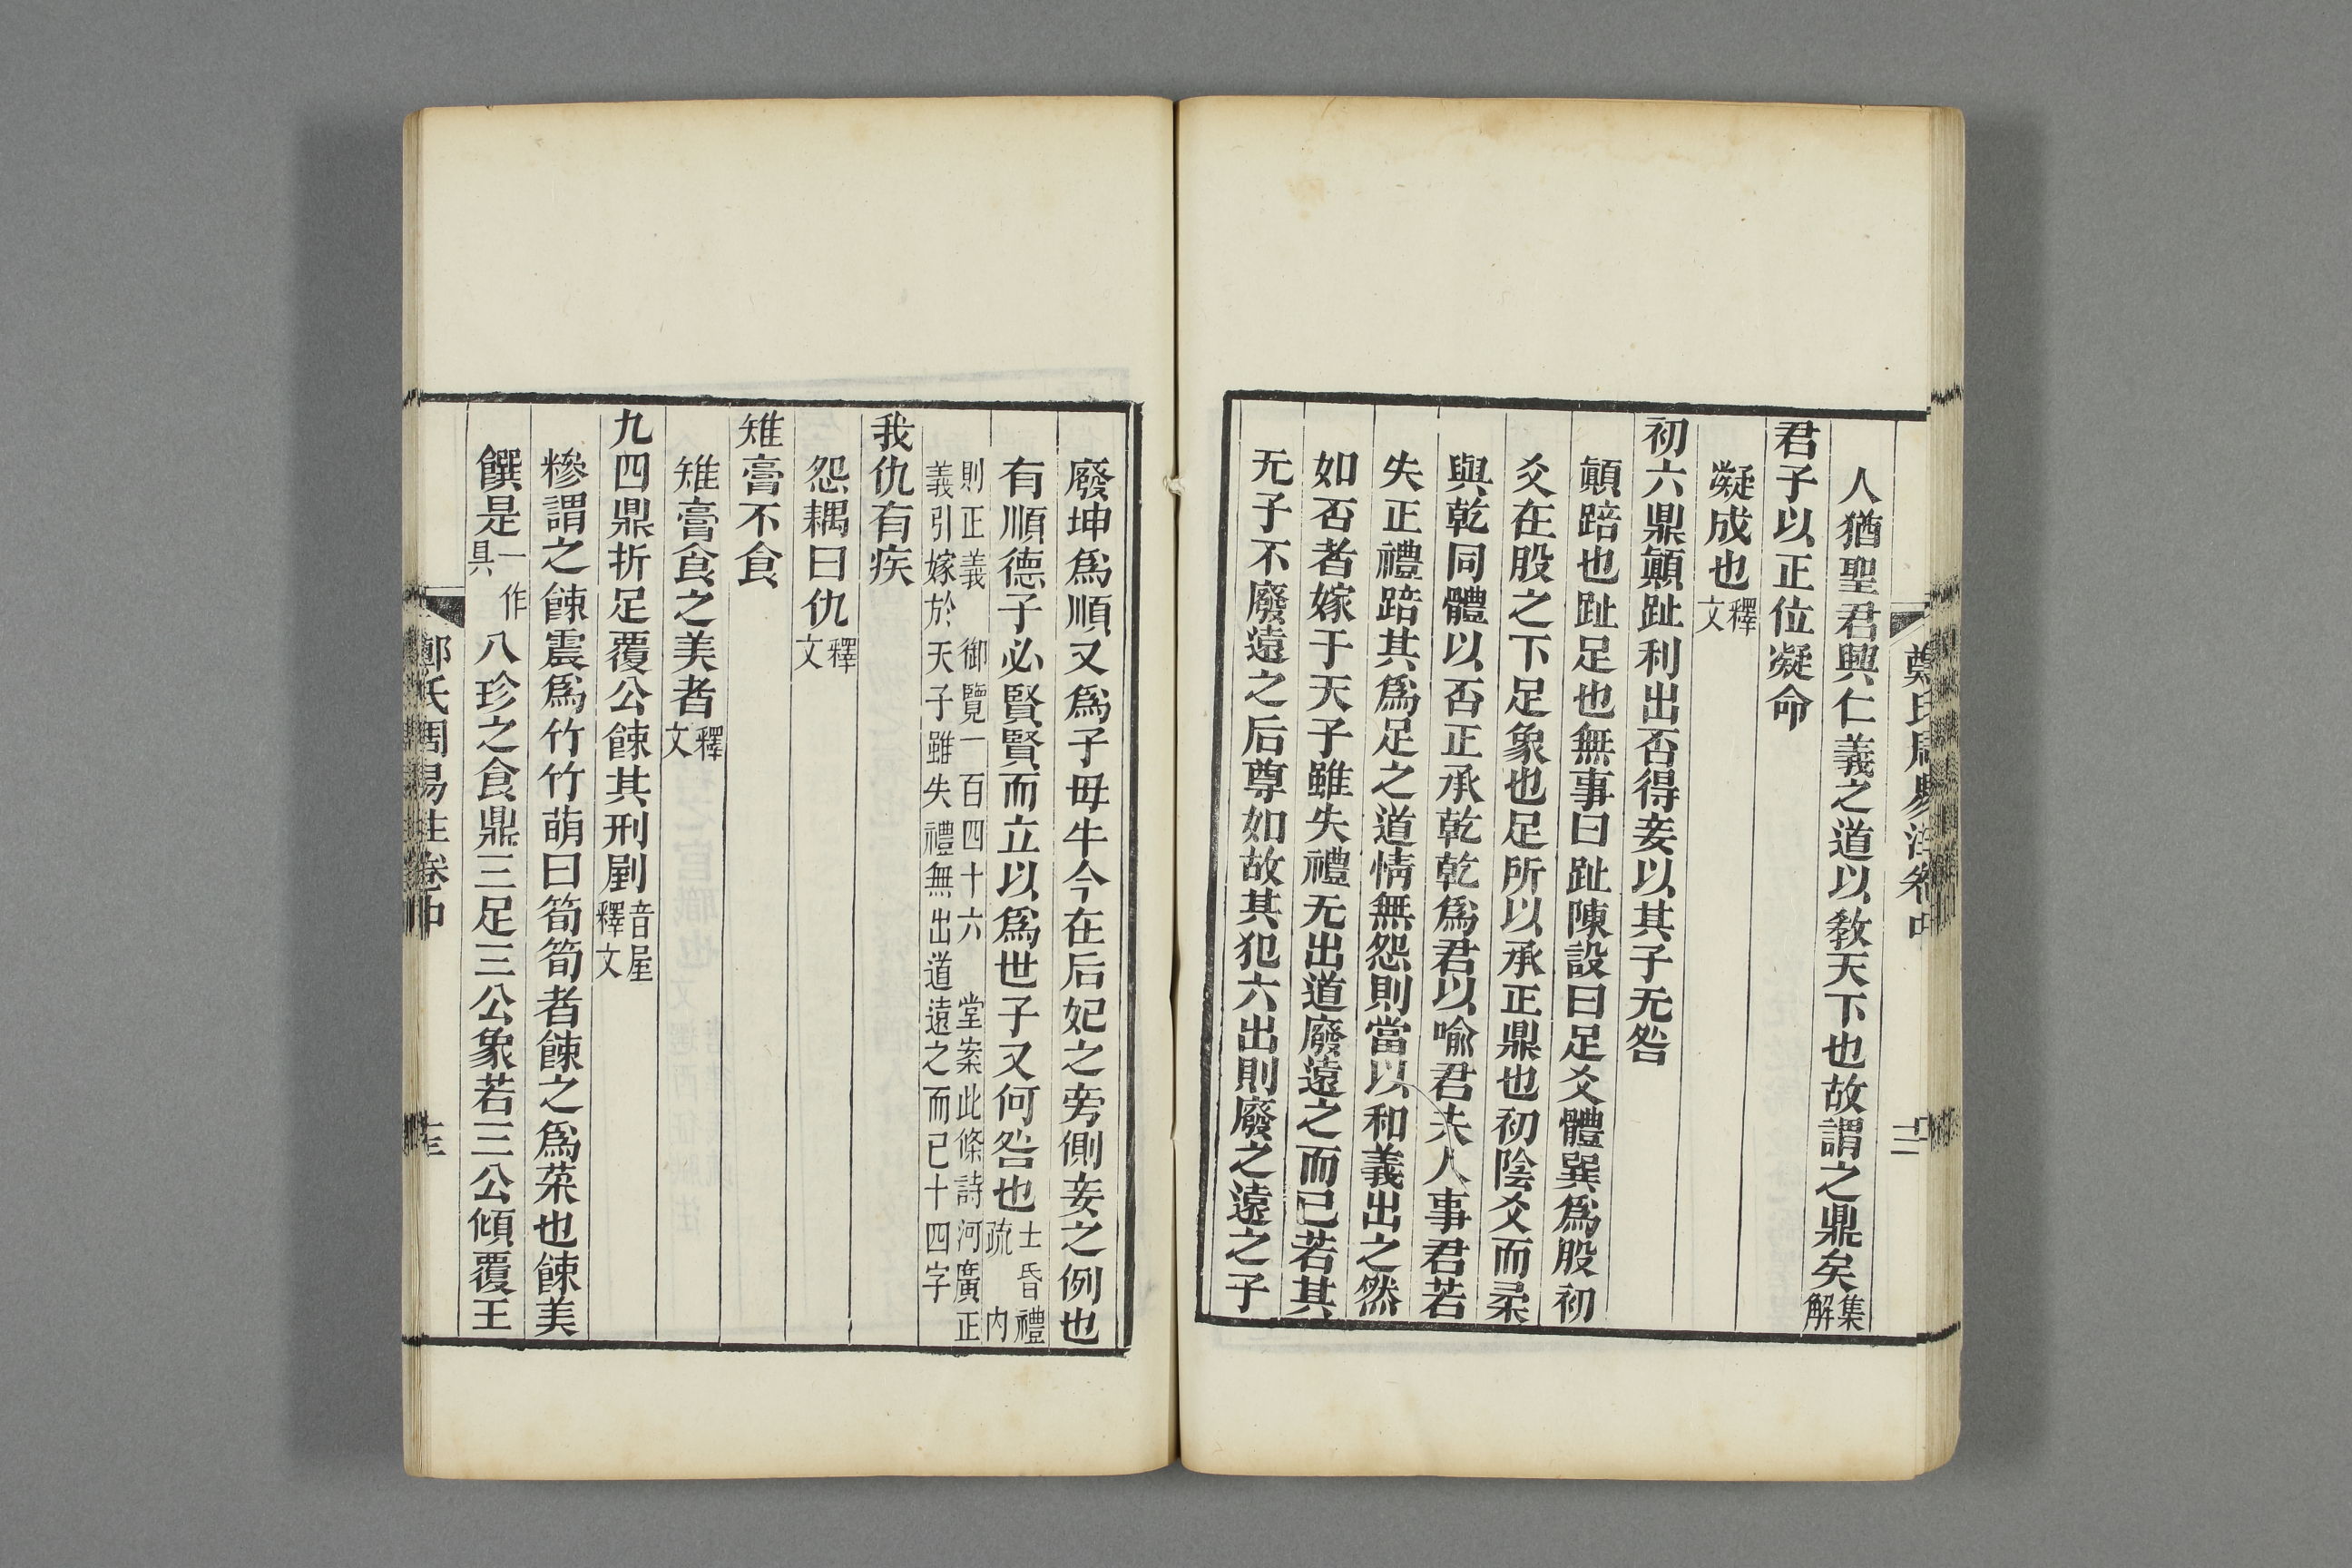 鄭氏周易注卷中
十二
人猶聖君興仁義之道以敎天下也故謂之鼎矣集解
君子以正位凝命
凝成也釋文
初六鼎顚趾利出否得妾以其子无咎
顚踣也趾足也無事曰趾陳設曰足爻體巽爲股初
爻在股之下足象也足所以承正鼎也初陰爻而柔
與乾同體以否正承乾乾爲君以喻君夫人事君若
失正禮踣其爲足之道情無怨則當以和義出之然
如否者嫁于天子雖失禮无出道廢遠之而已若其
无子不廢遠之后尊如故其犯六出則廢之遠之子
廢坤爲順又爲子母牛今在后妃之旁側妾之例也
有順德子必賢賢而立以爲世子又何咎也士昏禮疏 内
則正義 御覽一百四十六 堂案此條詩河廣正
義引嫁於天子雖失禮無出道遠之而已十四字
我仇有疾
怨耦曰仇釋文
雉膏不食
雉膏食之美者釋文
九四鼎折足覆公餗其刑剭音屋釋文
糝謂之餗震爲竹竹萌曰筍筍者餗之爲菜也餗美
饌是一作具八珍之食鼎三足三公象若三公傾覆王
鄭氏周易注卷中
十三